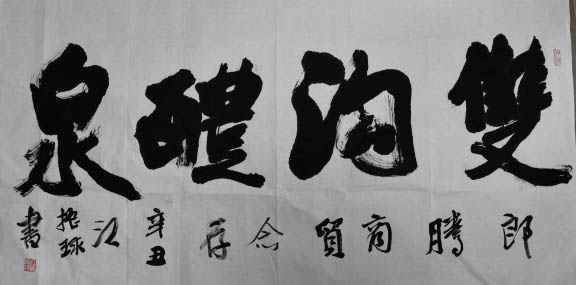 雙沟醴泉
郎騰商貿念存
辛丑
江振球
書